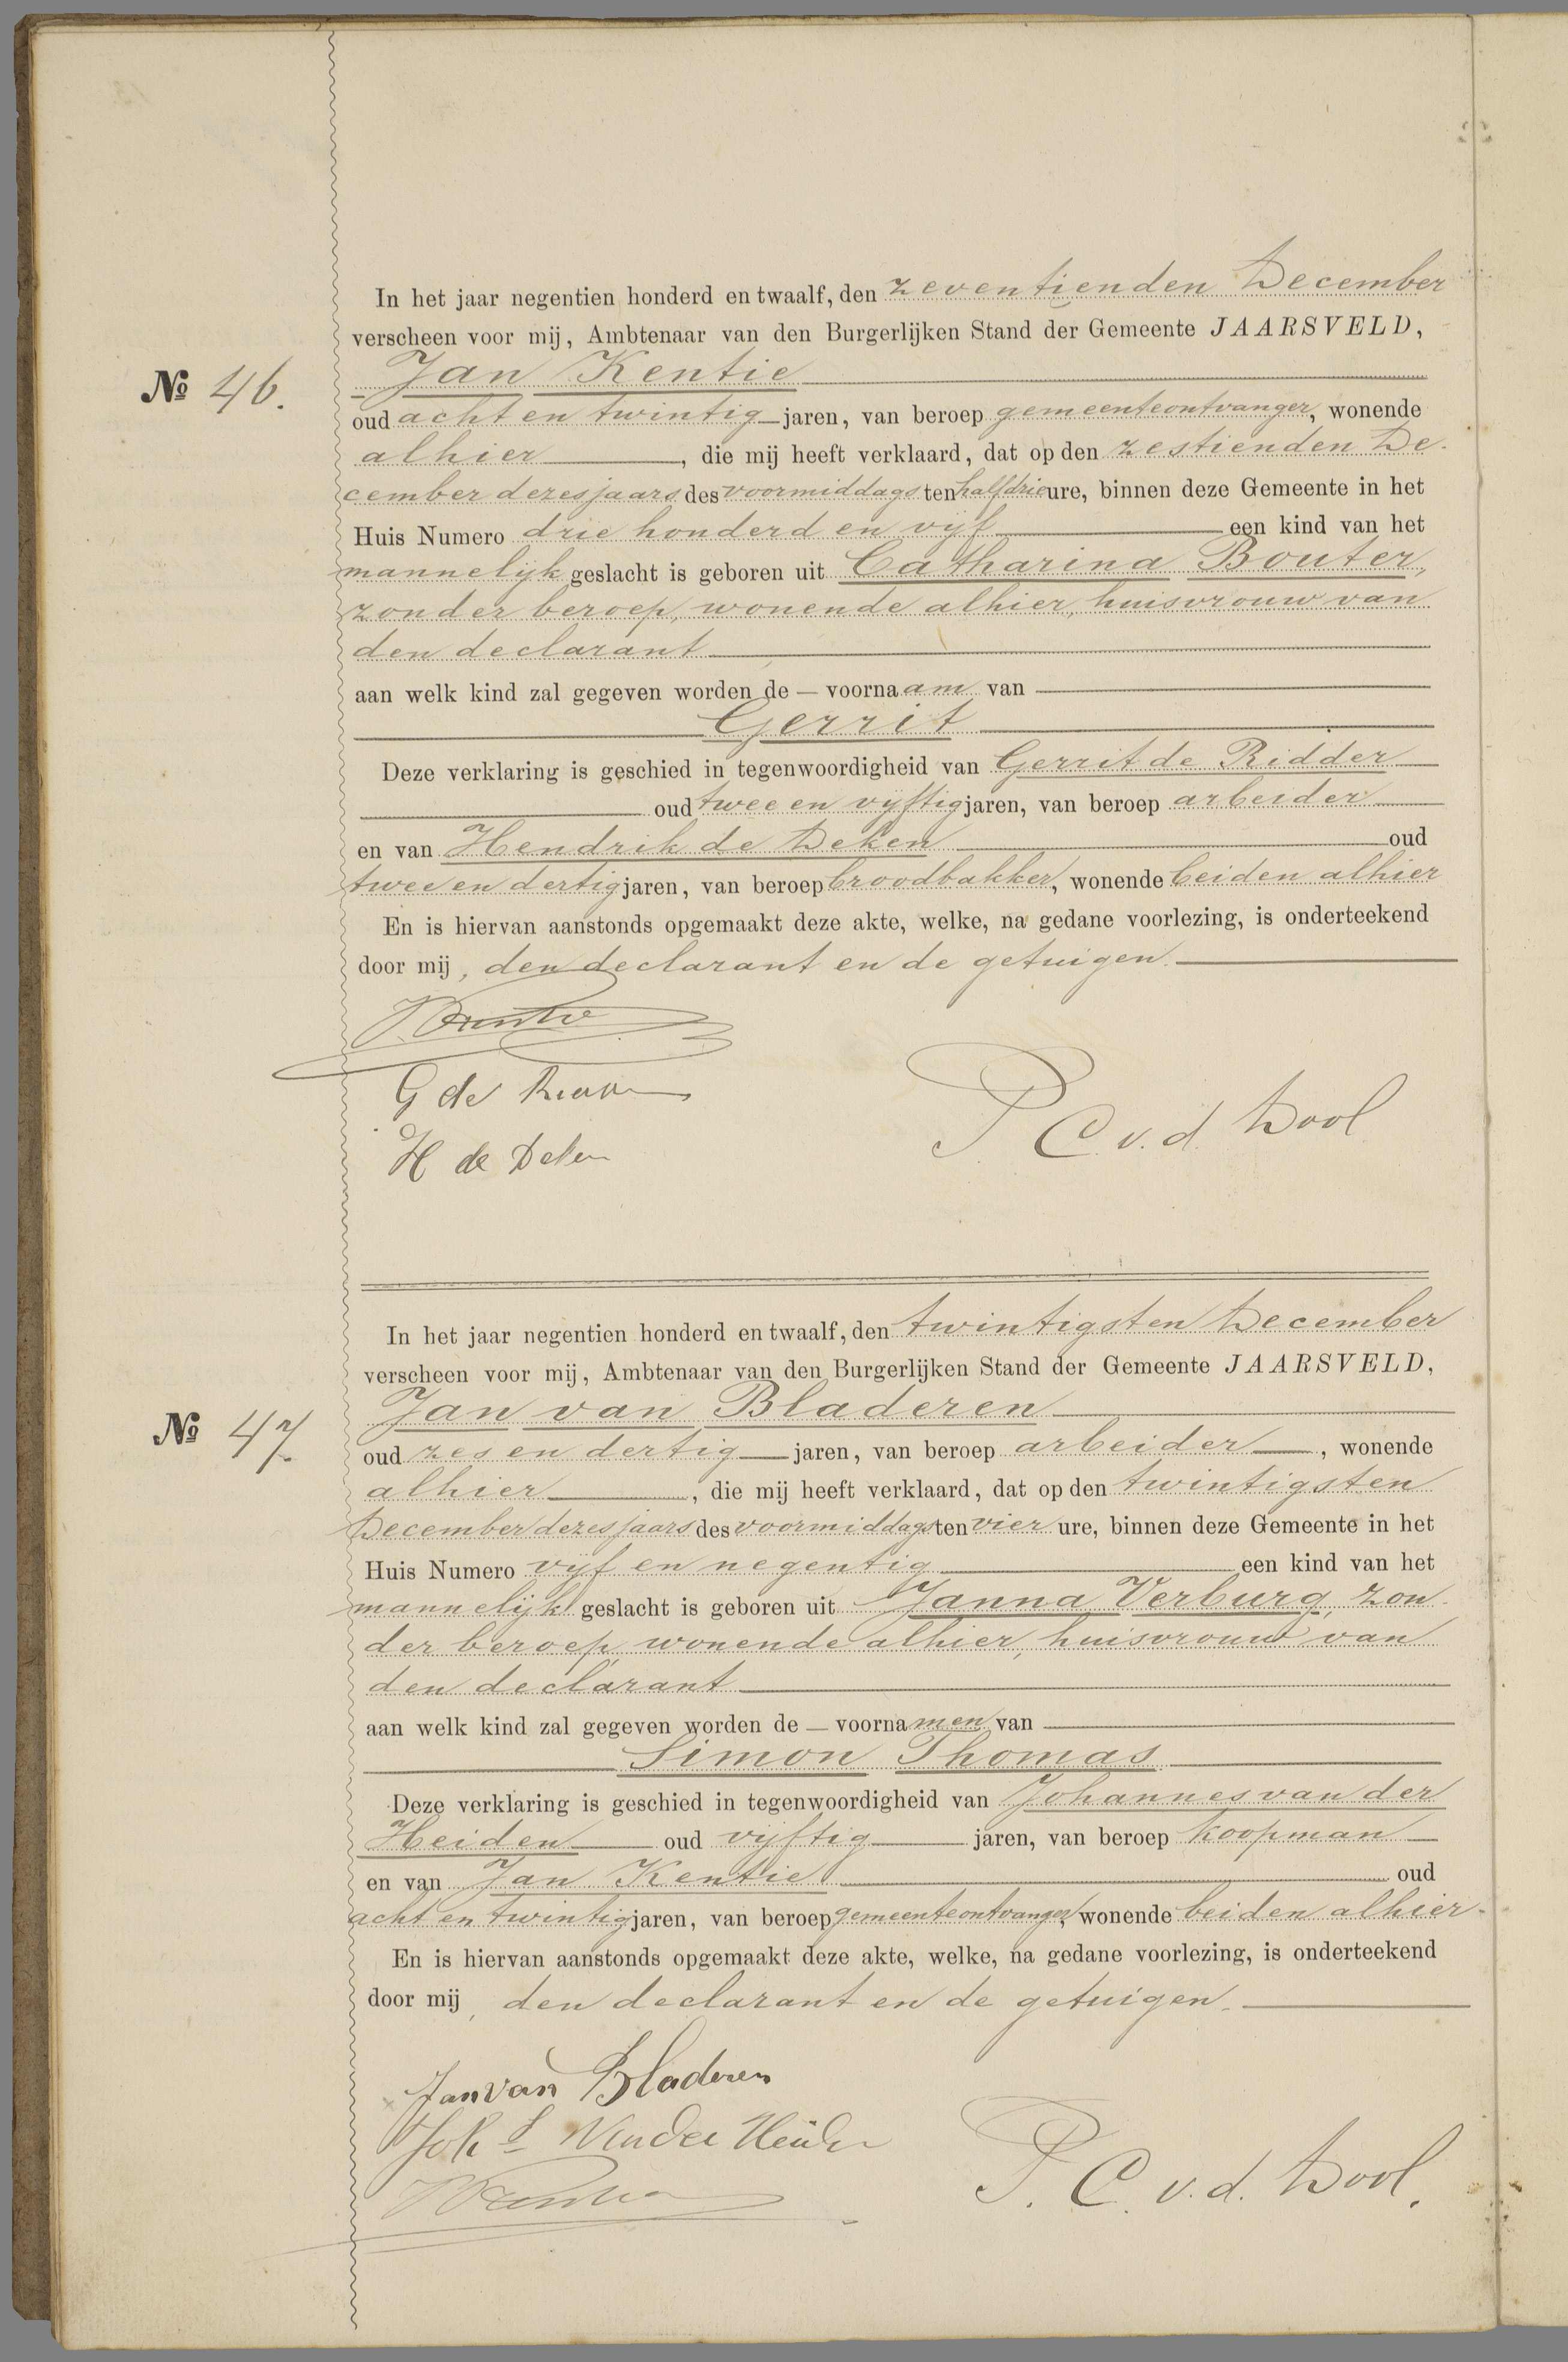 In het jaar negentien honderd en twaalf, den zeventienden December
verscheen voor mij, Ambtenaar van den Burgerlijken Stand der Gemeente JAARSVELD,
Jan Kentie
№ 46.
oud acht en twintig jaren, van beroep gemeenteontvanger, wonende
alhier, die mij heeft verklaard, dat op den zestienden De-
cember dezes jaars des voormiddags ten half drie ure, binnen deze Gemeente in het
Huis Numero drie honderd en vijf een kind van het
mannelijk geslacht is geboren uit Catharina Bouter,
zonder beroep, wonende alhier, huisvrouw van
den declarant
aan welk kind zal gegeven worden de — voornaam van
Gerrit
Deze verklaring is geschied in tegenwoordigheid van Gerrit de Ridder
oud twee en vijftig jaren, van beroep arbeider
en van Hendrik de Deken oud
twee en dertig jaren, van beroep broodbakker, wonende beiden alhier
En is hiervan aanstonds opgemaakt deze akte, welke, na gedane voorlezing, is onderteekend
door mij, den declarant en de getuigen.
JKentie
G de
H de Deken
P. C v. d. Dool
In het jaar negentien honderd en twaalf, den twintigsten December
verscheen voor mij, Ambtenaar van den Burgerlijken Stand der Gemeente JAARSVELD,
Jan van Bladeren
№ 47.
oud zes en dertig jaren, van beroep arbeider, wonende
alhier, die mij heeft verklaard, dat op den twintigsten
December dezes jaars des voormiddags ten vier ure, binnen deze Gemeente in het
Huis Numero vijf en negentig een kind van het
mannelijk geslacht is geboren uit Janna Verburg, zon-
der beroep, wonende alhier, huisvrouw van
den declarant
aan welk kind zal gegeven worden de — voornamen van
Simon Thomas
Deze verklaring is geschied in tegenwoordigheid van Johannes van der
Heiden oud vijftig jaren, van beroep koopman
en van Jan Kentie oud
acht en twintig jaren, van beroep gemeenteontvanger, wonende beiden alhier.
En is hiervan aanstonds opgemaakt deze akte, welke, na gedane voorlezing, is onderteekend
door mij, den declarant en de getuigen.
Jan van Bladeren
Joh s Van der Heiden
JKentie
P. C. v. d. Dool.